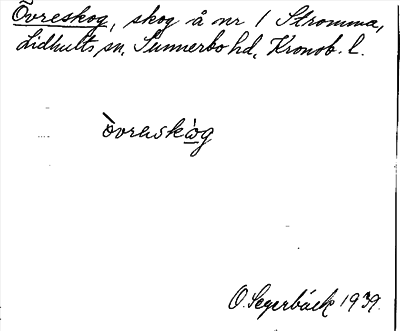 Övreskog, skog å nr 1 Stromma,
Lidhults sn, Sunnerbo hd, Kronob. l.
òvrəskòg
O. Segerbäck 1939.